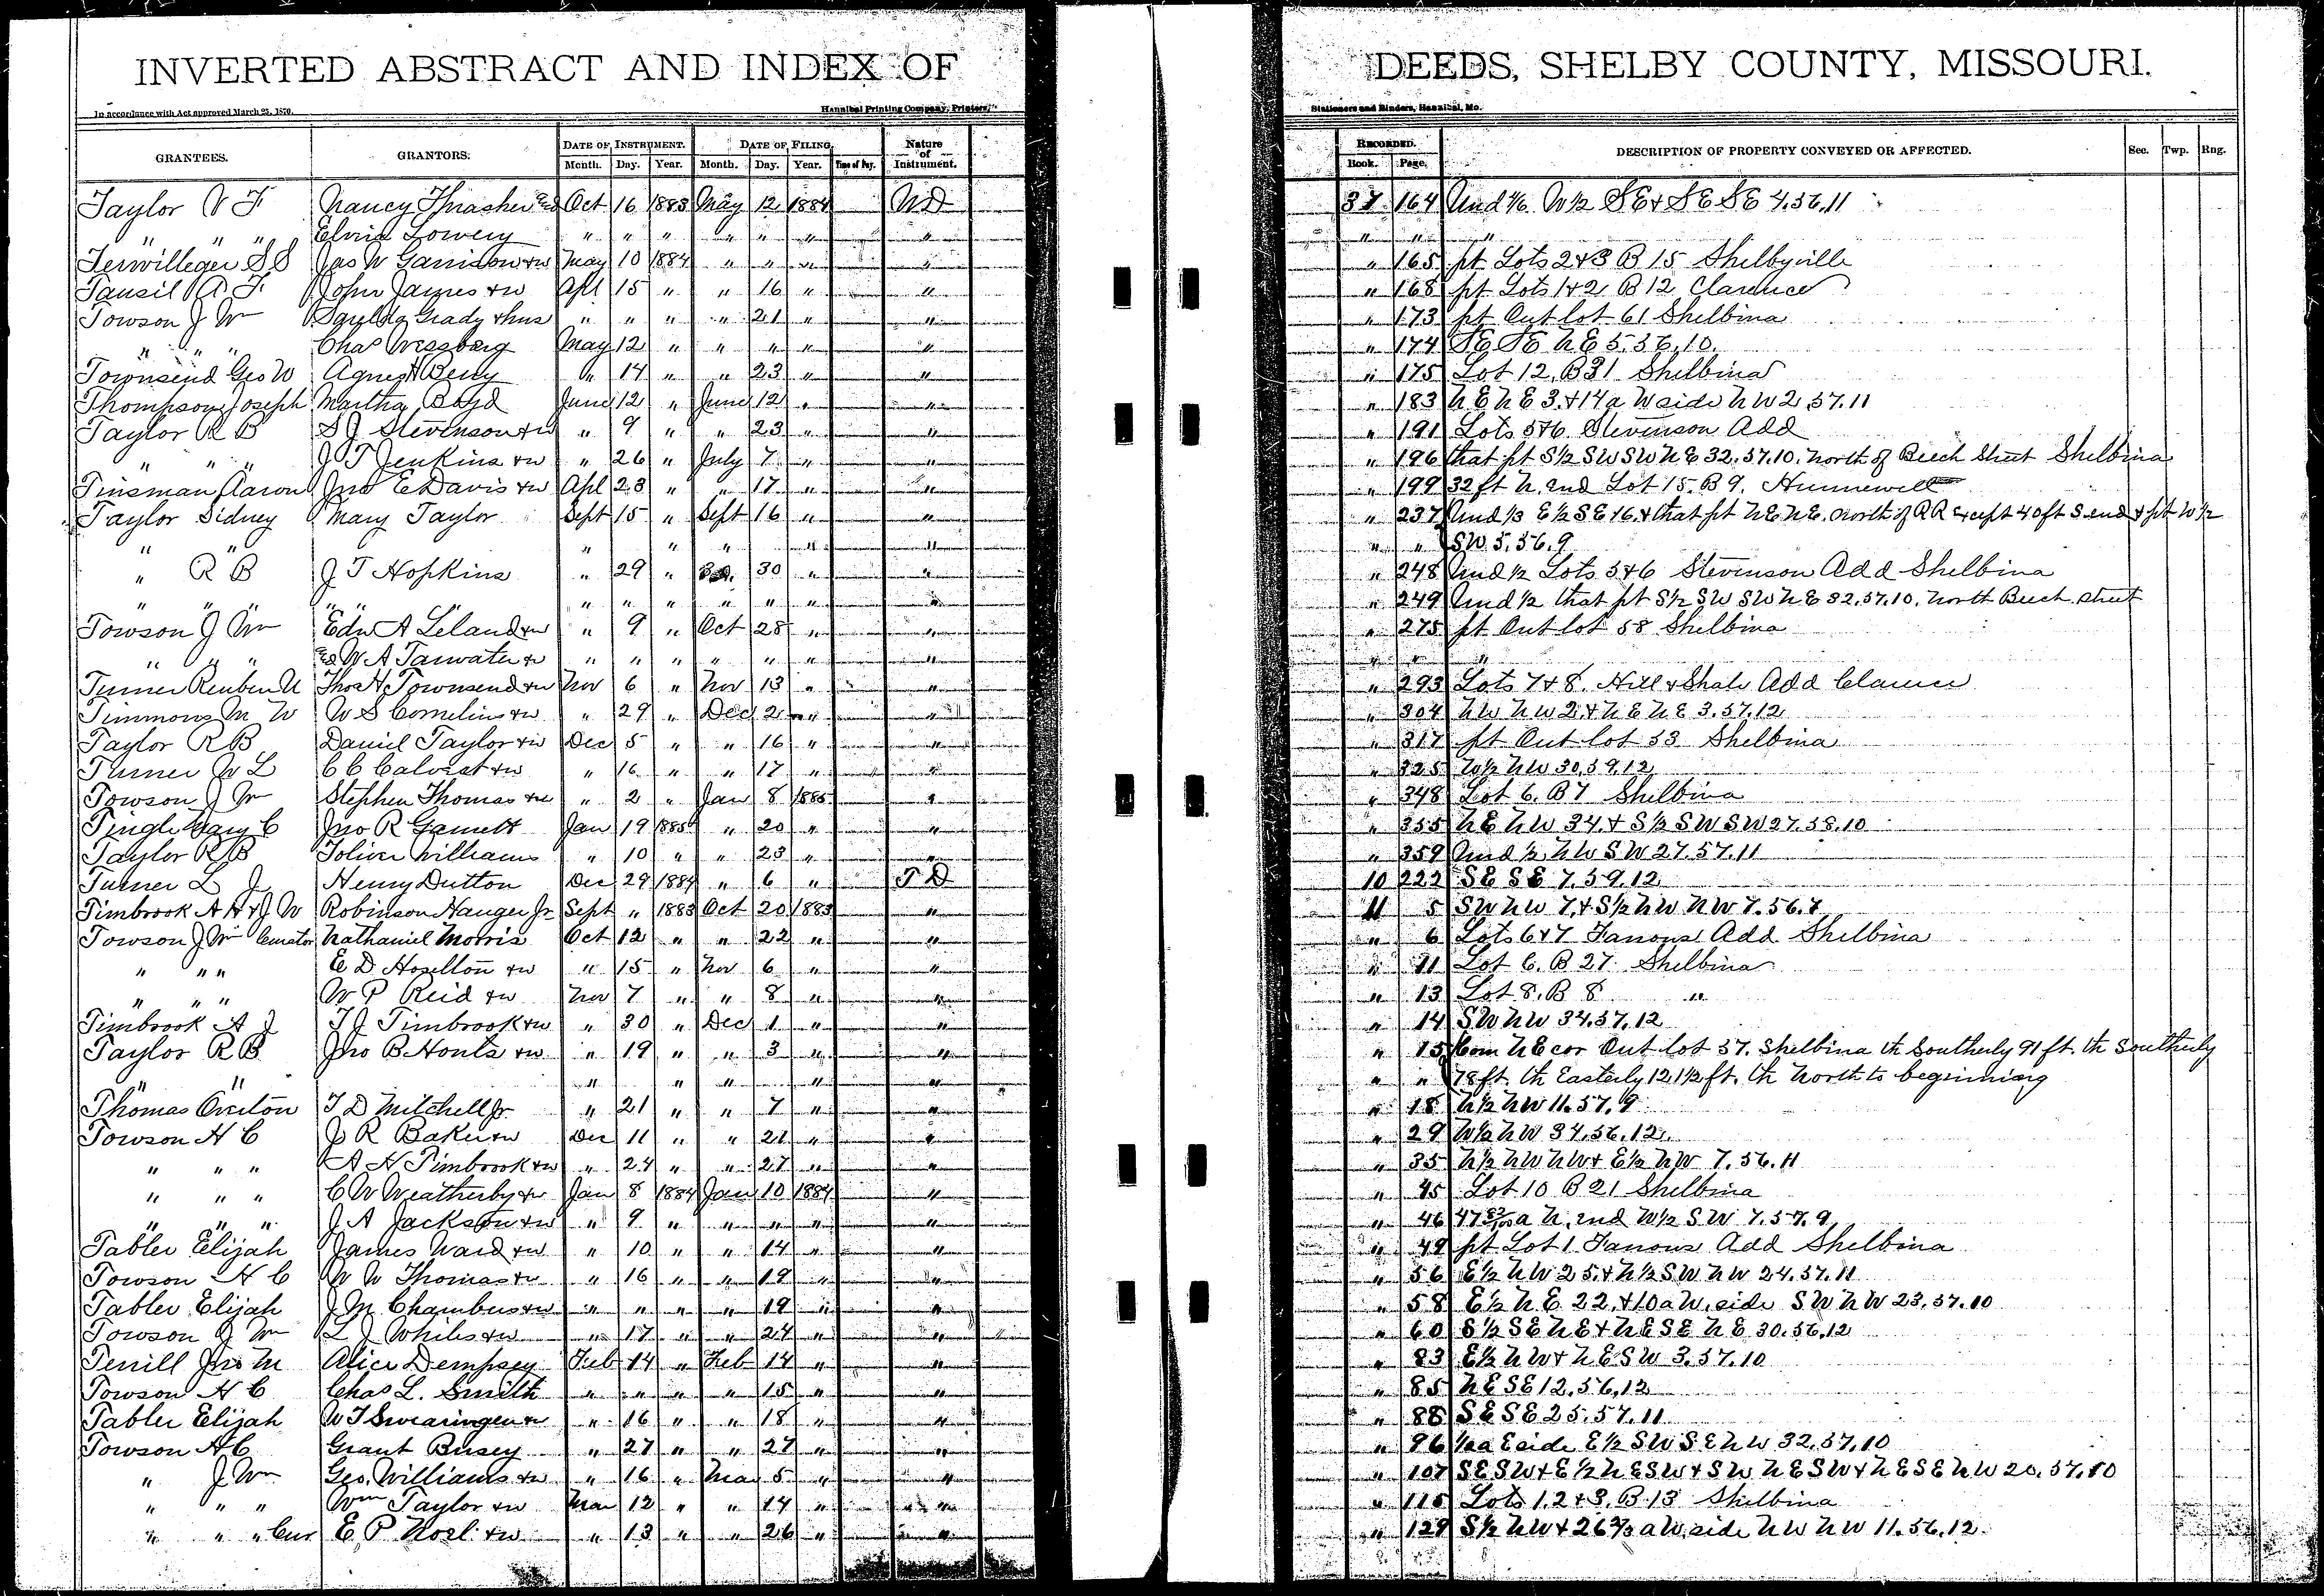 INVERTED ABSTRACT AND INDEX OF DEEDS, SHELBY COUNTY, MISSOURI.
In accordance with Act approved March 25, 1870. Hannibal Printing Company, Printers, Stationers and Binders, Hannibal, Mo.
GRANTEES. GRANTORS. DATE OF INSTRUMENT. DATE OF FILING. Nature of Instrument. RECORDED. DESCRIPTION OF PROPERTY CONVEYED OR AFFECTED. Sec. Twp. Rng.
Month. Day. Year. Month. Day. Year. Time of Day. Book. Page.
Taylor F Nancy Thrasher Oct 16 1883 May 12 1884 WD 37 164 Und 1/6 W½ SE & SE SE 4.56.11
" " " Elvira Lowery " " " " " " " " " "
Terwilleger S S Jas W Garrison & w May 10 1884 " " " " " 165 pt Lots 2 & 3 B 15 Shelbyville
Tansil A F John James & w Apl 15 " " 16 " " " 168 pt Lots 1 & 2 B 12 Clarence
Towson J Wm Grady & hus " " " " 21 " " " 173 pt Out lot 61 Shelbina
" " " Chas Wessberg May 12 " " " " " " 174 SE SE NE 5.56.10
Townsend Geo W Agnes H Berry " 14 " " 23 " " " 175 Lot 12, B31 Shelbina
Thompson Joseph Martha Boyd June 12 " June 12 " " " 183 NE NE 3. & 14a W side NW 2.57.11
Taylor R B S J Stevenson & w " 9 " " 23 " " " 191 Lots 5&6 Stevenson Add
" " " J T Jenkins & w " 26 " July 7 " " " 196 that pt S½ SW SW NE 32.57.10. north of Beech Street Shelbina
Tinsman Aaron Jno E Davis & w Apl 23 " " 17 " " " 199 32 ft N. end Lot 15. B 9. Hunnewell
Taylor Sidney Mary Taylor Sept 15 " Sept 16 " " " 237 Und 1/3 E½ SE & 6. & that pt NE NE. north of RR except 40 ft S end & pt W½
" " " " " " " " " SW. 5.56.9
" R B J T Hopkins " 29 " 30 " " " 248 Und ½ Lots 5&6 Stevenson Add Shelbina
" " " " " " " " " " " " " 249 Und ½ that pt S½ SW SW NE 32.57.10. north Beech street
Towson J Wm Edw A Leland & w " 9 " Oct 28 " " " 275 pt Out lot 58 Shelbina
" " " W A Tarwater & w " " " " " " " " " "
Turner Reuben U Thos H Townsend & w Nov 6 " Nov 13 " " " 293 Lots 7 & 8. Hill & Shale Add Clarence
Timmons M W W S Cornelius & w " 29 " Dec 2 " " " 304 NW NW 2. & NE NE 3.57.12
Taylor R B Daniel Taylor & w Dec 5 " " 16 " " " 317 pt Out lot 53 Shelbina
Turner W L C C Calvert & w " 16 " " 17 " " " 325 W½ NW 30.59.12
Towson J Wm Stephen Thomas & w " 2 " Jan 8 1885 " " 348 Lot 6. B7 Shelbina
Tingle Mary C Jno R Garnett Jan 19 1885 " 20 " " " 355 NE NW 34. & S½ SW SW 27.58.10
Taylor R B Toliver Williams " 10 " " 23 " " " 359 Und ½ NW SW 27.57.11
Turner L J Henry Dutton Dec 29 1884 " 6 " T D 10 222 SE SE 7.59.12
Timbrook A H & J W Robinson Hauger Jr Sept " 1883 Oct 20 1883 " 11 5 SW NW 7. & S½ NW NW 7.56.
Towson J Wm Curator Nathaniel Morris Oct 12 " " 22 " " " 6 Lots 6&7 Fanous Add Shelbina
" " " E D Hosellton & w " 15 " Nov 6 " " " 11 Lot 6. B 27 Shelbina
" " " W P Reid & w Nov 7 " " 8 " " " 13 Lot 8. B 8 "
Timbrook A J T J Timbrook & w " 30 " Dec 1 " " " 14 SW NW 34.57.12
Taylor R B Jno B Honts & w " 19 " " 3 " " " 15 Com NE cor Out lot 37. Shelbina th Southerly 91 ft. th Southerly
" " " " " " " " " 78 ft. th Easterly 121½ ft. th North to beginning
Thomas Overton T D Mitchell Jr " 21 " " 7 " " " 18 N½ NW 11.57.9
Towson H C J R Baker & w Dec 11 " " 21 " " " 29 W½ NW 34.56.12
" " " A H Timbrook & w " 24 " " 27 " " " 35 N½ NW NW & E½ NW 7.56.11
" " " C W Weatherby & w Jan 8 1884 Jan 10 1884 " " 45 Lot 10 B 21 Shelbina
" " " J A Jackson & w " 9 " " " " " " 46 47 a N. end W½ SW 7.57.9
Tabler Elijah James Ward & w " 10 " " 14 " " " 49 pt Lot 1 Fanous Add Shelbina
Towson H C W W Thomas & w " 16 " " 19 " " " 56 E½ NW 25. & N½ SW NW 24.57.11
Tabler Elijah J M Chambers & w " " " " 19 " " " 58 E½ NE 22. & 10a W. side SW NW 23.57.10
Towson J Wm L J Whiles & w " 17 " " 24 " " " 60 S½ SE NE & NE SE NE 30.56.12
Terrill Jno M Alice Dempsey Feb 14 " Feb 14 " " " 83 E½ NW & NE SW 3.57.10
Towson H C Chas L. Smith " " " " 15 " " " 85 NE SE 12.56.12
Tabler Elijah W T Swearingen & w " 16 " " 18 " " " 88 SE SE 25.57.11
Towson H C Grant Busey " 27 " " 27 " " " 96 a E side E½ SW SE NW 32.57.10
" J Wm Geo. Williams & w " 16 " Mar 5 " " " 107 SE SW & E½ NE SW & SW NE SW & NE SE NW 20.57.10
" " " Wm Taylor & w Mar 12 " " 14 " " " 115 Lots 1.2 & 3. B.13 Shelbina
" " " Cur E P Noel & w " 13 " " 26 " " " 129 S½ NW & 26⅔ a W. side NW NW 11.56.12